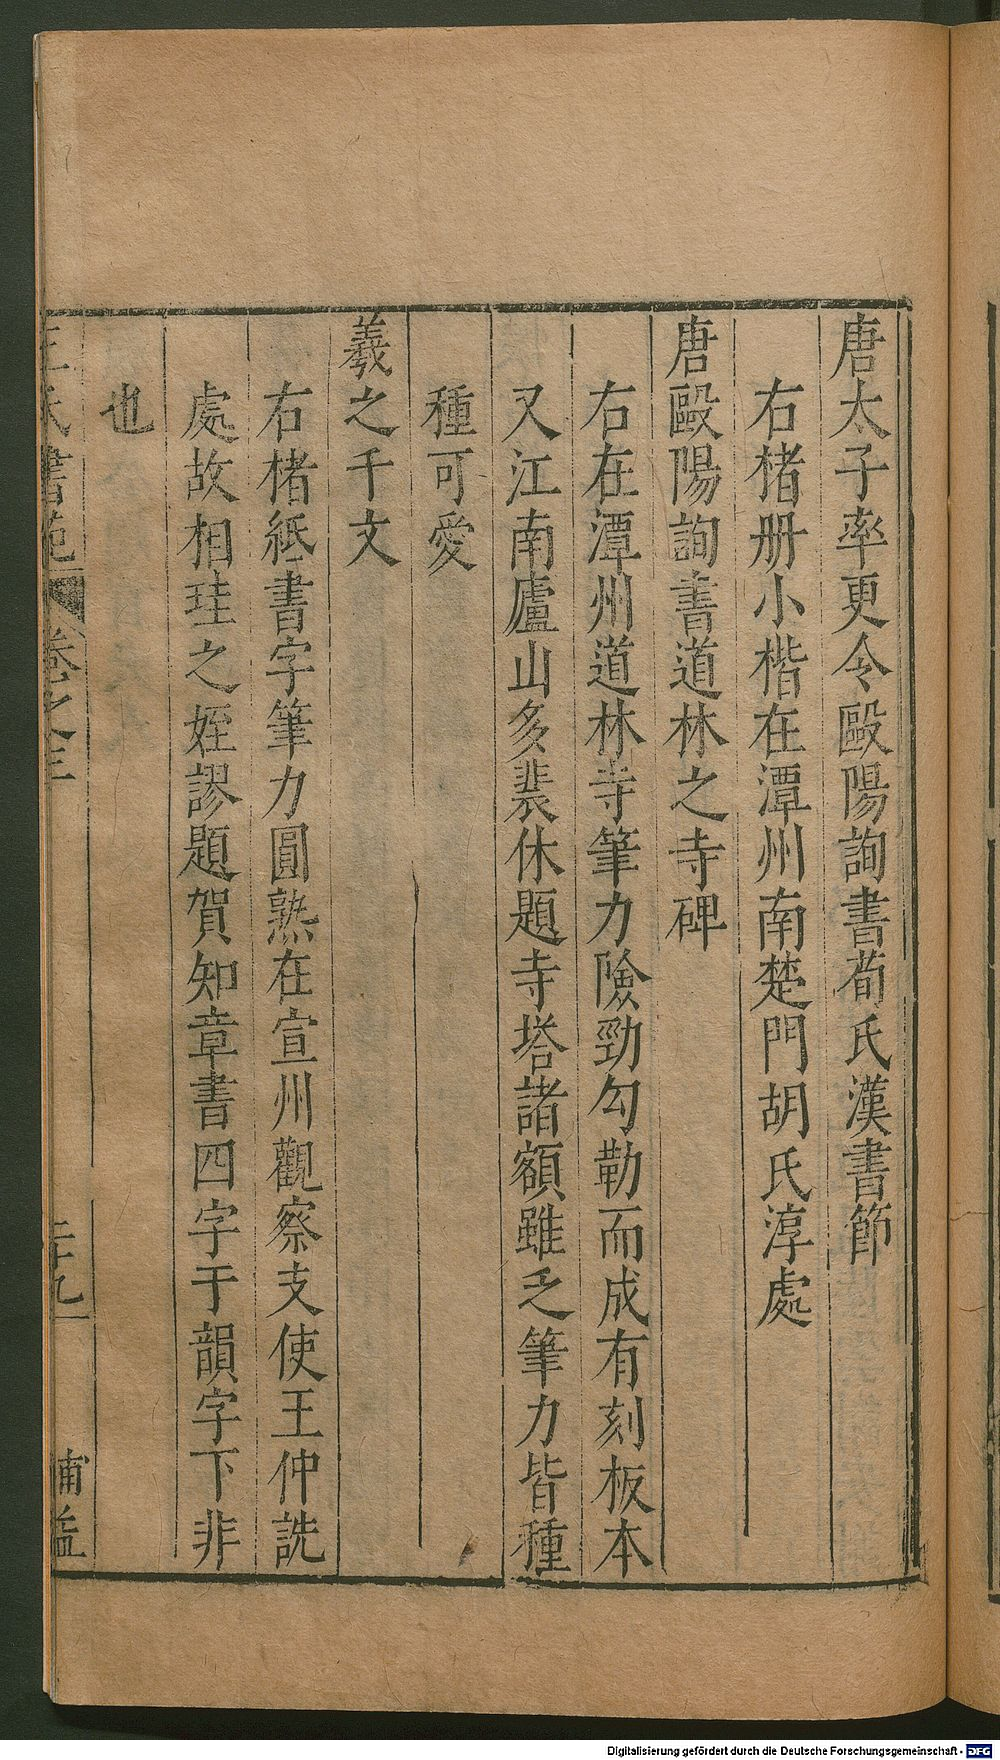 唐太子率更令歐陽詢書荀氏漢書節
右楮册小楷在潭州南楚門胡氏淳處
唐歐陽詢書道林之寺碑
右在潭州道林寺筆力險勁勾勒而成有刻板本
又江南廬山多裴休題寺塔諸額雖乏筆力皆種
種可愛
羲之千文
右楮紙書字筆力圓熟在宣州觀察支使王仲詵
處故相珪之姪謬題賀知章書四字于韻字下非
也
王氏書苑 卷之三 二十九 補益
Digitalisierung gefördert durch die Deutsche Forschungsgemeinschaft - DFG